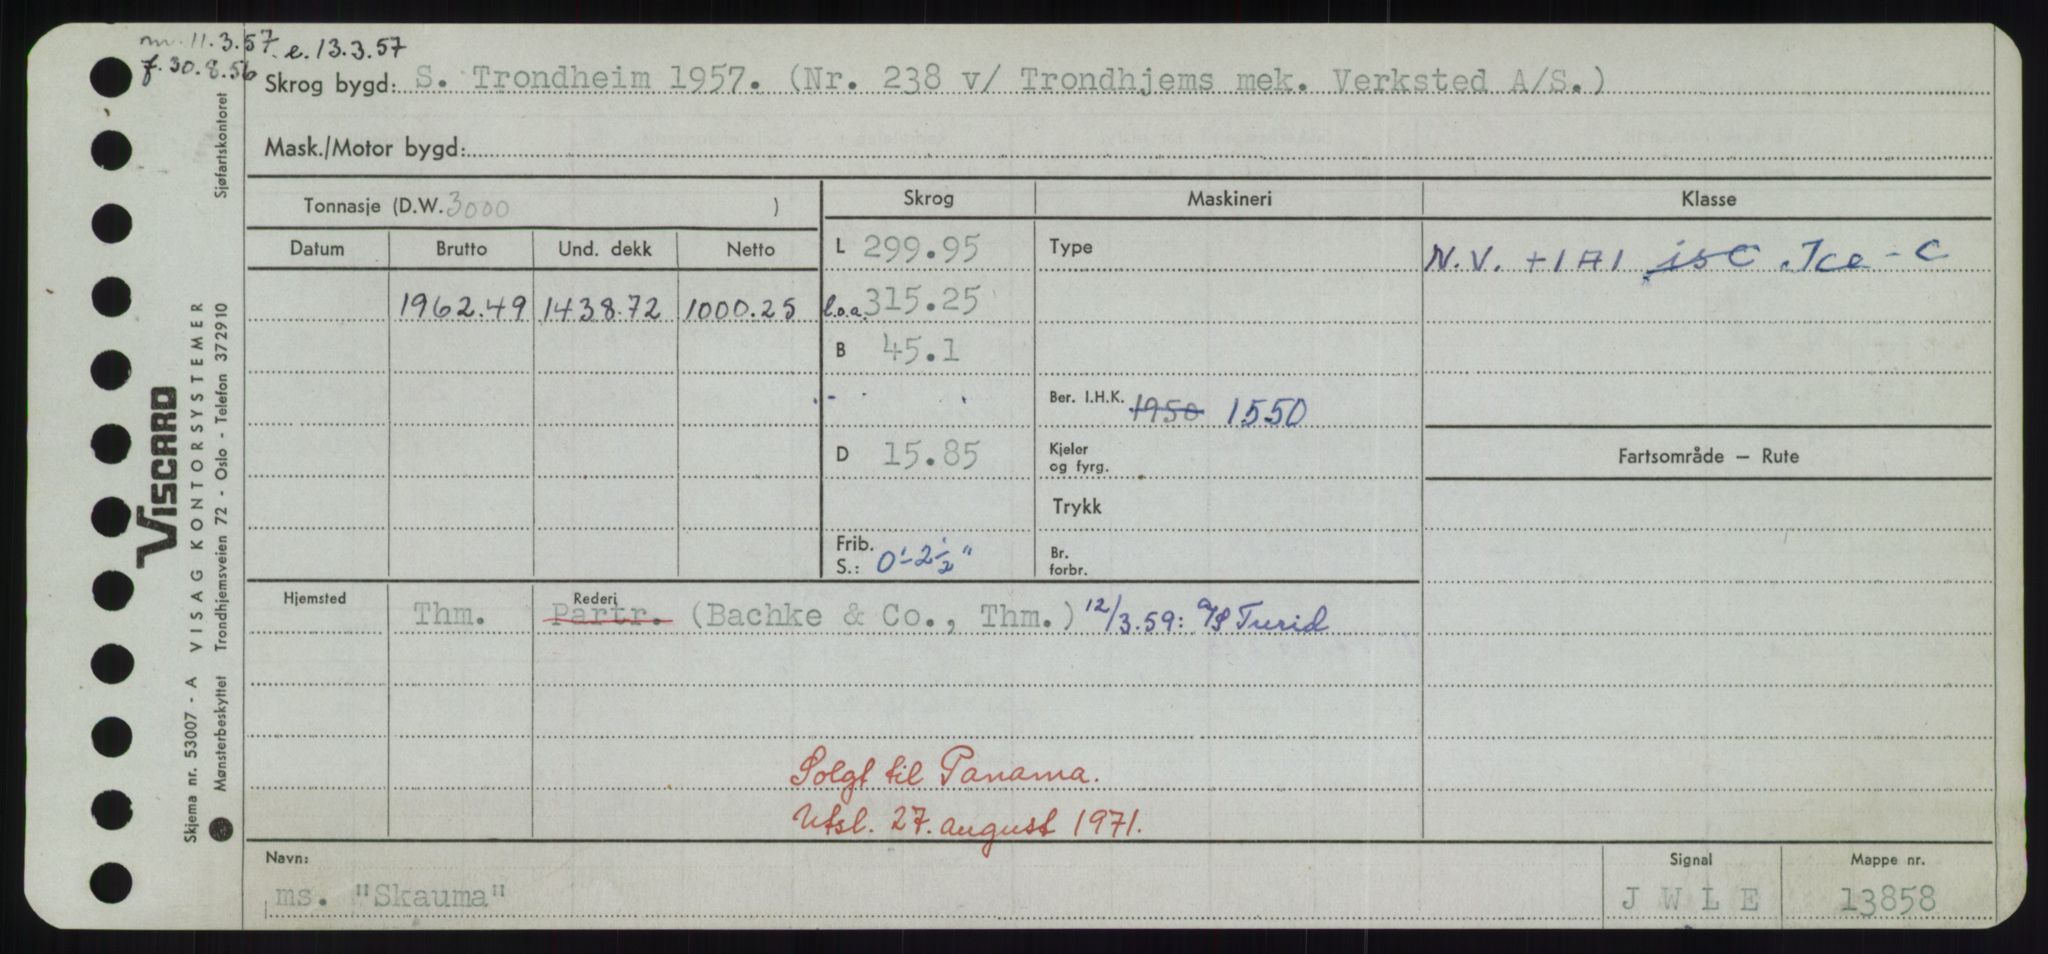 m. 11.3.57. e. 13.3.57
f. 30.8.56
Skrog bygd: S. Trondheim 1957. (Nr. 238 v/ Trondhjems mek. Verksted A/S.)
Mask./Motor bygd:
Tonnasje (D.W. 3000 )
Skrog Maskineri Klasse
Datum Brutto Und. dekk Netto
L 299.95 Type N.V. +1A1 isC Ice-C
1962.49 1438.72 1000.25 l.o.a. 315.25
B 45.1
Ber. I.H.K. 1950 1550
D 15.85 Kjeler
og fyrg.
Fartsområde – Rute
Trykk
Frib.
S.: 0'-2½"
Br.
forbr.
Hjemsted Rederi
Thm. Partr. (Bachke & Co., Thm.) 12/3.59: A/S Turid
Solgt til Panama.
Utsl. 27. august 1971.
Navn: Signal Mappe nr.
ms. "Skauma" J W L E 13858
Sjøfartskontoret
VISCARD
VISAG KONTORSYSTEMER
Trondhjemsveien 72 - Oslo - Telefon 372910
Skjema nr. 53007 - A
Mønsterbeskyttet